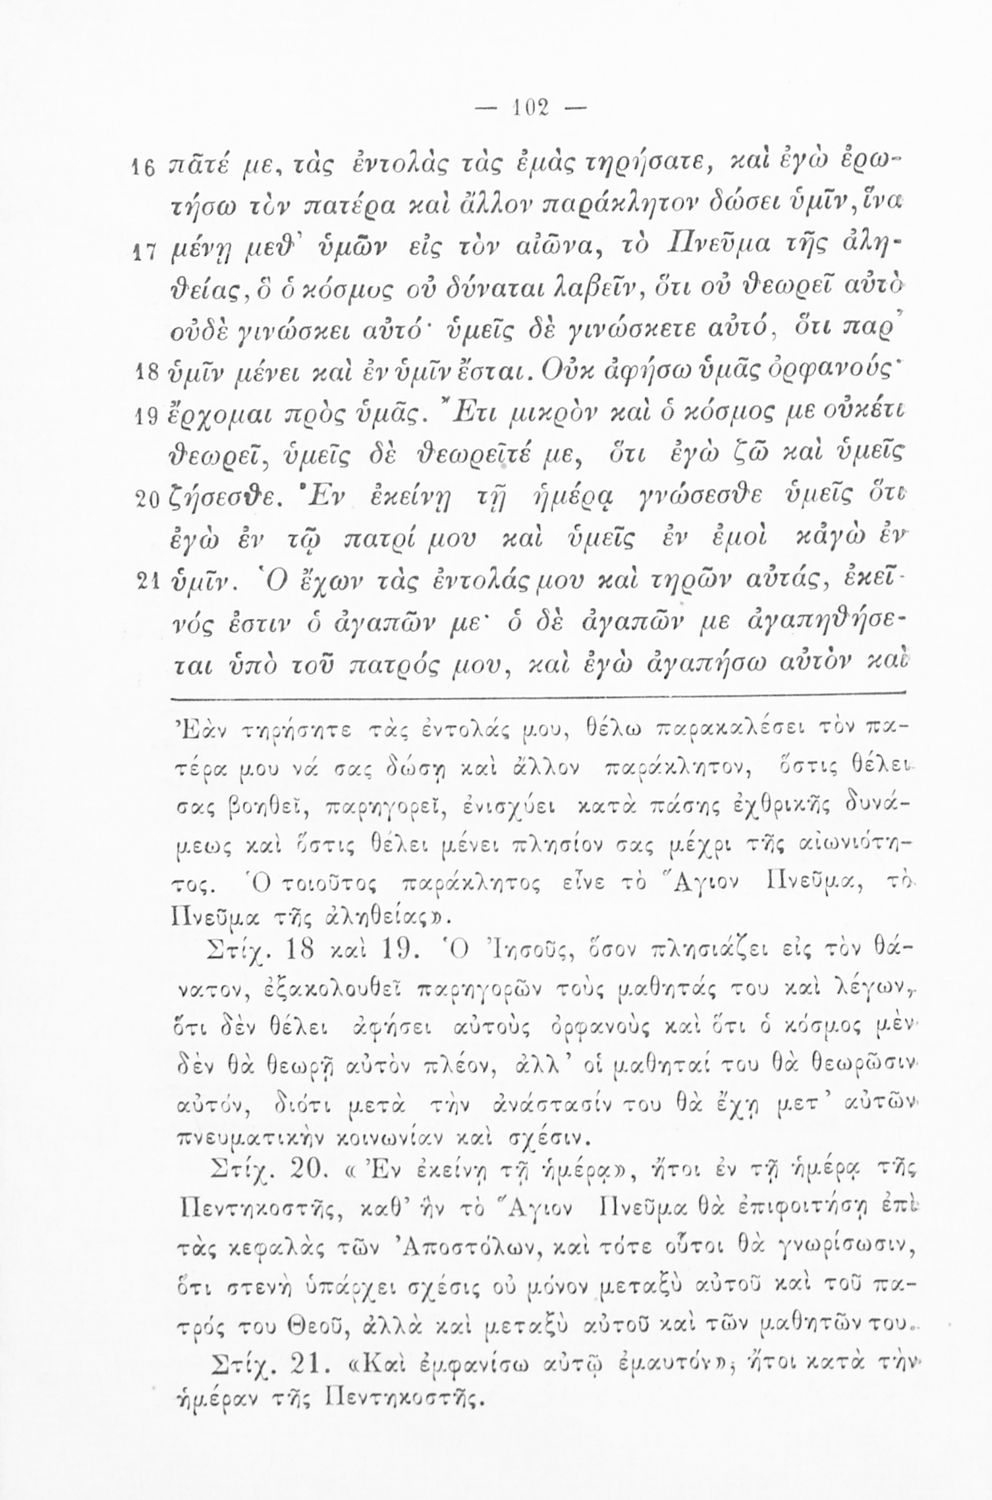 — 102 —
16 πᾶτέ με, τὰς ἐντολὰς τὰς ἐμὰς τηρήσατε, καὶ ἐγὼ ἐρω-
τήσω τὸν πατέρα καὶ ἄλλον παράκλητον δώσει ὑμῖν, ἵνα
17 μένῃ μεθ' ὑμῶν εἰς τὸν αἰῶνα, τὸ Πνεῦμα τῆς ἀλη-
θείας, ὃ ὁ κόσμος οὐ δύναται λαβεῖν, ὅτι οὐ θεωρεῖ αὐτὸ
οὐδὲ γινώσκει αὐτό· ὑμεῖς δὲ γινώσκετε αὐτό, ὅτι παρ'
18 ὑμῖν μένει καὶ ἐν ὑμῖν ἔσται. Οὐκ ἀφήσω ὑμᾶς ὀρφανούς·
19 ἔρχομαι πρὸς ὑμᾶς. Ἔτι μικρὸν καὶ ὁ κόσμος με οὐκέτι
θεωρεῖ, ὑμεῖς δὲ θεωρεῖτέ με, ὅτι ἐγὼ ζῶ καὶ ὑμεῖς
20 ζήσεσθε. Ἐν ἐκείνῃ τῇ ἡμέρᾳ γνώσεσθε ὑμεῖς ὅτι
ἐγὼ ἐν τῷ πατρί μου καὶ ὑμεῖς ἐν ἐμοὶ κἀγὼ ἐν
21 ὑμῖν. Ὁ ἔχων τὰς ἐντολάς μου καὶ τηρῶν αὐτάς, ἐκεῖ-
νός ἐστιν ὁ ἀγαπῶν με· ὁ δὲ ἀγαπῶν με ἀγαπηθήσε-
ται ὑπὸ τοῦ πατρός μου, καὶ ἐγὼ ἀγαπήσω αὐτὸν καὶ
Ἐὰν τηρήσητε τὰς ἐντολάς μου, θέλω παρακαλέσει τὸν πα-
τέρα μου νά σας δώσῃ καὶ ἄλλον παράκλητον, ὅστις θέλει
σας βοηθεῖ, παρηγορεῖ, ἐνισχύει κατὰ πάσης ἐχθρικῆς δυνά-
μεως καὶ ὅστις θέλει μένει πλησίον σας μέχρι τῆς αἰωνιότη-
τος. Ὁ τοιοῦτος παράκλητος εἶνε τὸ Ἅγιον Πνεῦμα, τὸ
Πνεῦμα τῆς ἀληθείας».
Στίχ. 18 καὶ 19. Ὁ Ἰησοῦς, ὅσον πλησιάζει εἰς τὸν θά-
νατον, ἐξακολουθεῖ παρηγορῶν τοὺς μαθητάς του καὶ λέγων,
ὅτι δὲν θέλει ἀφήσει αὐτοὺς ὀρφανοὺς καὶ ὅτι ὁ κόσμος μὲν
δὲν θὰ θεωρῇ αὐτὸν πλέον, ἀλλ' οἱ μαθηταί του θὰ θεωρῶσιν
αὐτόν, διότι μετὰ τὴν ἀνάστασίν του θὰ ἔχῃ μετ' αὐτῶν
πνευματικὴν κοινωνίαν καὶ σχέσιν.
Στίχ. 20. «Ἐν ἐκείνῃ τῇ ἡμέρᾳ», ἤτοι ἐν τῇ ἡμέρᾳ τῆς
Πεντηκοστῆς, καθ' ἣν τὸ Ἅγιον Πνεῦμα θὰ ἐπιφοιτήσῃ ἐπὶ
τὰς κεφαλὰς τῶν Ἀποστόλων, καὶ τότε οὗτοι θὰ γνωρίσωσιν,
ὅτι στενὴ ὑπάρχει σχέσις οὐ μόνον μεταξὺ αὐτοῦ καὶ τοῦ πα-
τρός του Θεοῦ, ἀλλὰ καὶ μεταξὺ αὐτοῦ καὶ τῶν μαθητῶν του.
Στίχ. 21. «Καὶ ἐμφανίσω αὐτῷ ἐμαυτόν», ἤτοι κατὰ τὴν
ἡμέραν τῆς Πεντηκοστῆς.